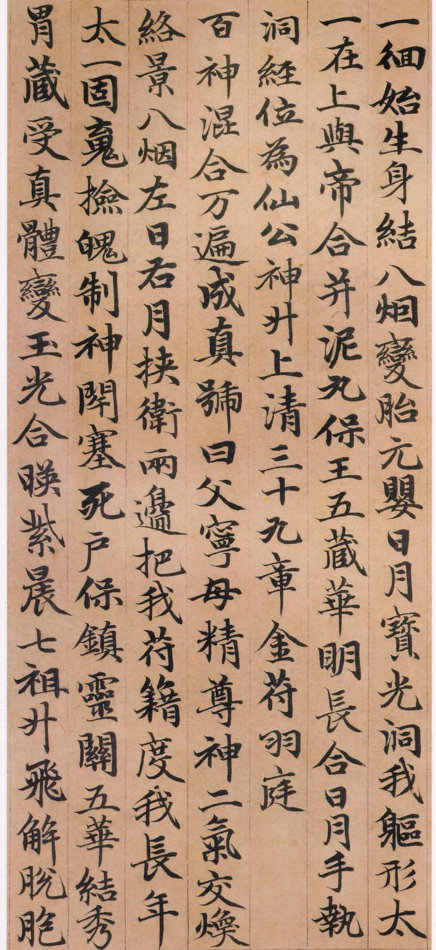 一徊始生身結八烟變胎元嬰日月寳光洞我軀形太
一在上與帝合并泥丸保王五蔵華明長合日月手執
洞經位為仙公神升上清三十九章金苻羽庭
百神混合万遍成真號曰父寧母精尊神二氣交煥
絡景八烟左日右月挾衛兩邉把我苻籍度我長年
太一固䰟撿魄制神閇塞死戶保鎮靈關五華結秀
胃蔵受真體變玉光合暎紫晨七祖升飛解脱胞